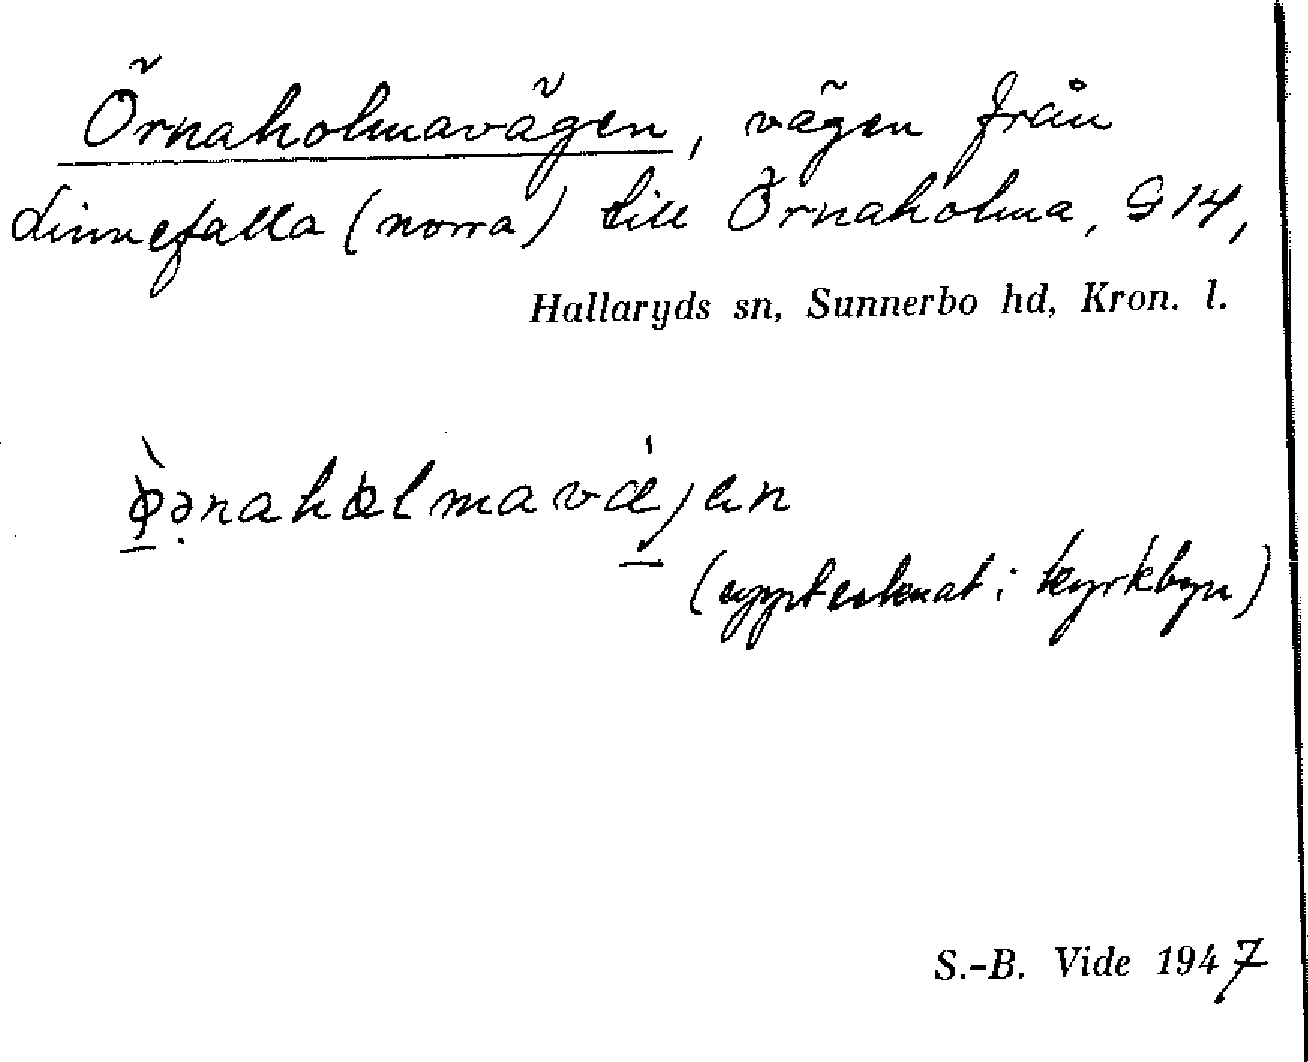 Örnaholmavägen, vägen från
Linnefalla (norra) till Örnaholma, G 14,
Hallaryds sn, Sunnerbo hd, Kron. l.
(upptecknat i kyrkbyn)
S.-B. Vide 1947